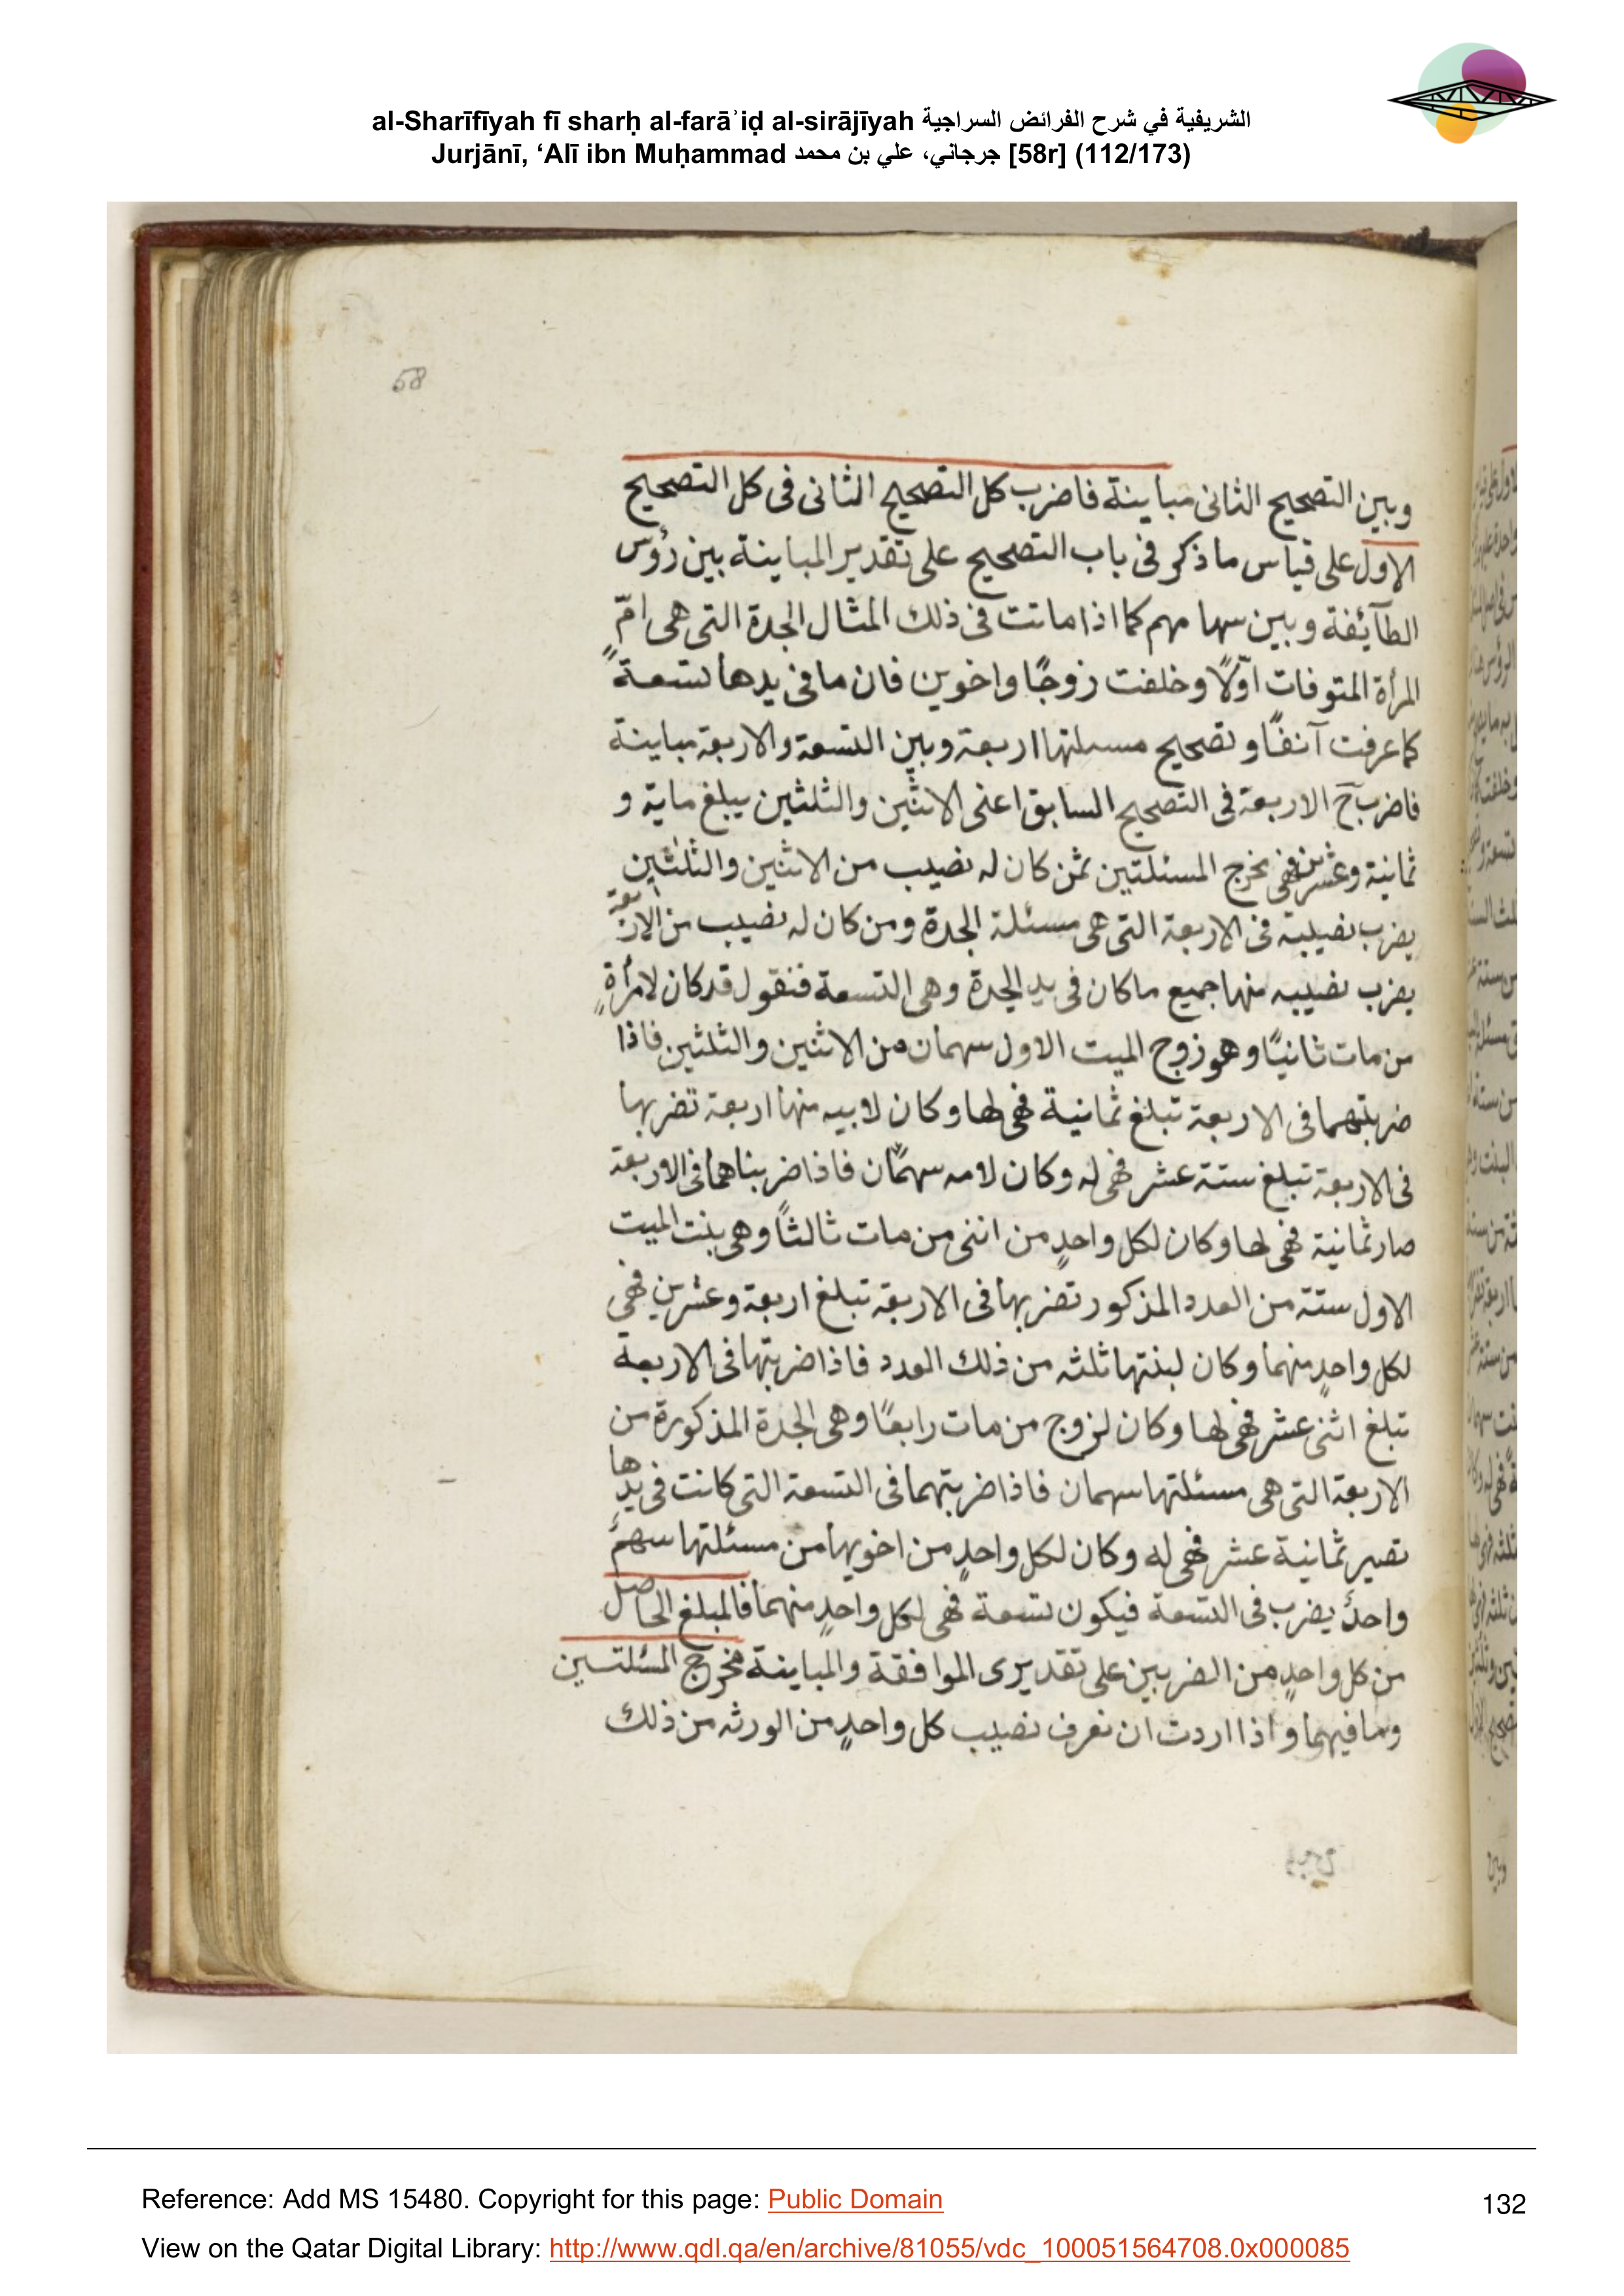 al-Sharīfīyah fī sharḥ al-farāʾiḍ al-sirājīyah الشريفية في شرح الفرائض السراجية
Jurjānī, ‘Alī ibn Muḥammad جرجاني، علي بن محمد [58r] (112/173)
58
وبين التصحيح الثانى مباينة فاضرب كل التصحيح الثانى فى كل التصحيح
الاول على قياس ما ذكر فى باب التصحيح على تقدير المباينة بين رؤس
الطآئفة وبين سهامهم كما اذا ماتت فى ذلك المثال الجدة التى هى امّ
المرأة المتوفات اوّلًا وخلفت زوجًا واخوين فان ما فى يدها تسعةً
كما عرفت آنفًا وتصحيح مسئلتها اربعة وبين التسعة والاربعة مباينة
فاضرب ح الاربعة فى التصحيح السابق اعنى الاثنين والثلثين يبلغ ماية و
ثمانية وعشرين فهى مخرج المسئلتين ثمن كان له نصيب من الاثنين والثلثين
يضرب نصيبه فى الاربعة التى هى مسئلة الجدة ومن كان له نصيب من الاربعة
يضرب نصيبه منها جميع ما كان فى يد الجدة وهى التسعة فنقول قد كان لامرأةٍ
من مات ثانيًا وهو زوج الميت الاول سهمان من الاثنين والثلثين فاذا
ضربتهما فى الاربعة تبلغ ثمانية فهى لها وكان لابيه منها اربعة تضربها
فى الاربعة تبلغ ستة عشر فهى له وكان لامه سهمان فاذا ضربناهما فى الاربعة
صار ثمانية فهى لها وكان لكل واحدٍ من اننى من مات ثالثًا وهى بنت الميت
الاول ستة من العدد المذكور تضربها فى الاربعة تبلغ اربعة وعشرين فهى
لكل واحدٍ منهما وكان لبنتها ثلثه من ذلك العدد فاذا ضربتها فى الاربعة
تبلغ اثنى عشر فهى لها وكان لزوج من مات رابعًا وهى الجدة المذكورة من
الاربعة التى هى مسئلتها سهمان فاذا ضربتهما فى التسعة التى كانت فى يدها
تصير ثمانية عشر فهى له وكان لكل واحدٍ من اخويها من مسئلتها سهمٌ
واحدٌ يضرب فى التسعة فيكون تسعة فهى لكل واحدٍ منهما فالمبلغ الحاصل
من كل واحدٍ من الضربين على تقديرى الموافقة والمباينة مخرج المسئلتين
وما فيهما واذا اردت ان نعرف نصيب كل واحدٍ من الورثه من ذلك
Reference: Add MS 15480. Copyright for this page: Public Domain
132
View on the Qatar Digital Library: http://www.qdl.qa/en/archive/81055/vdc_100051564708.0x000085